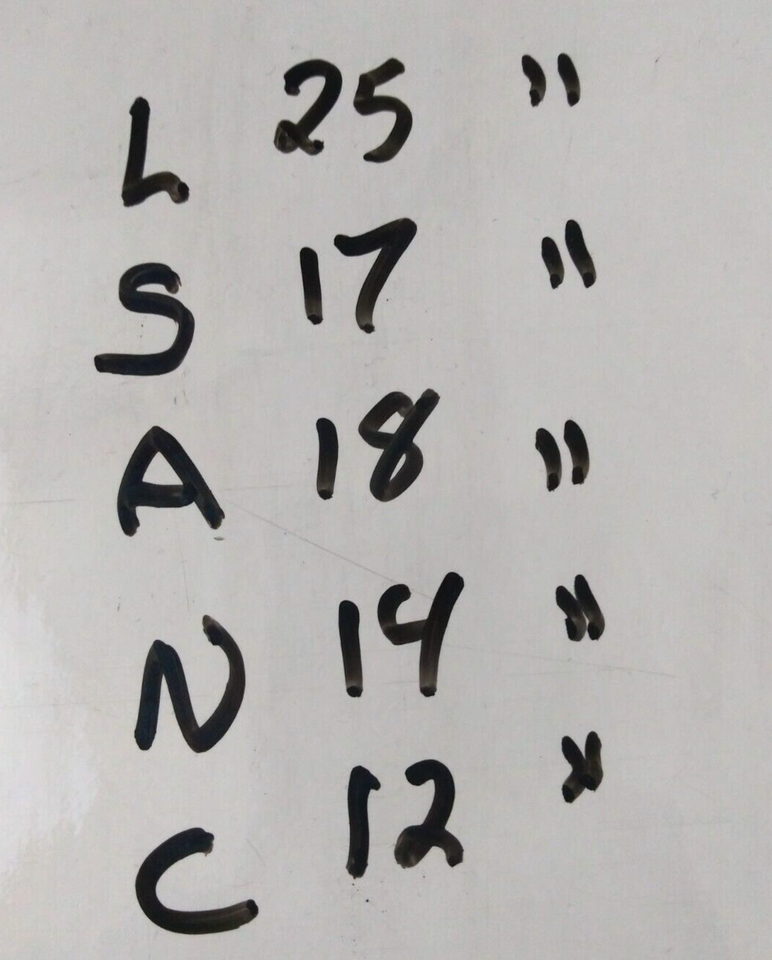 L 25 "
S 17 "
A 18 "
N 14 "
C 12 "